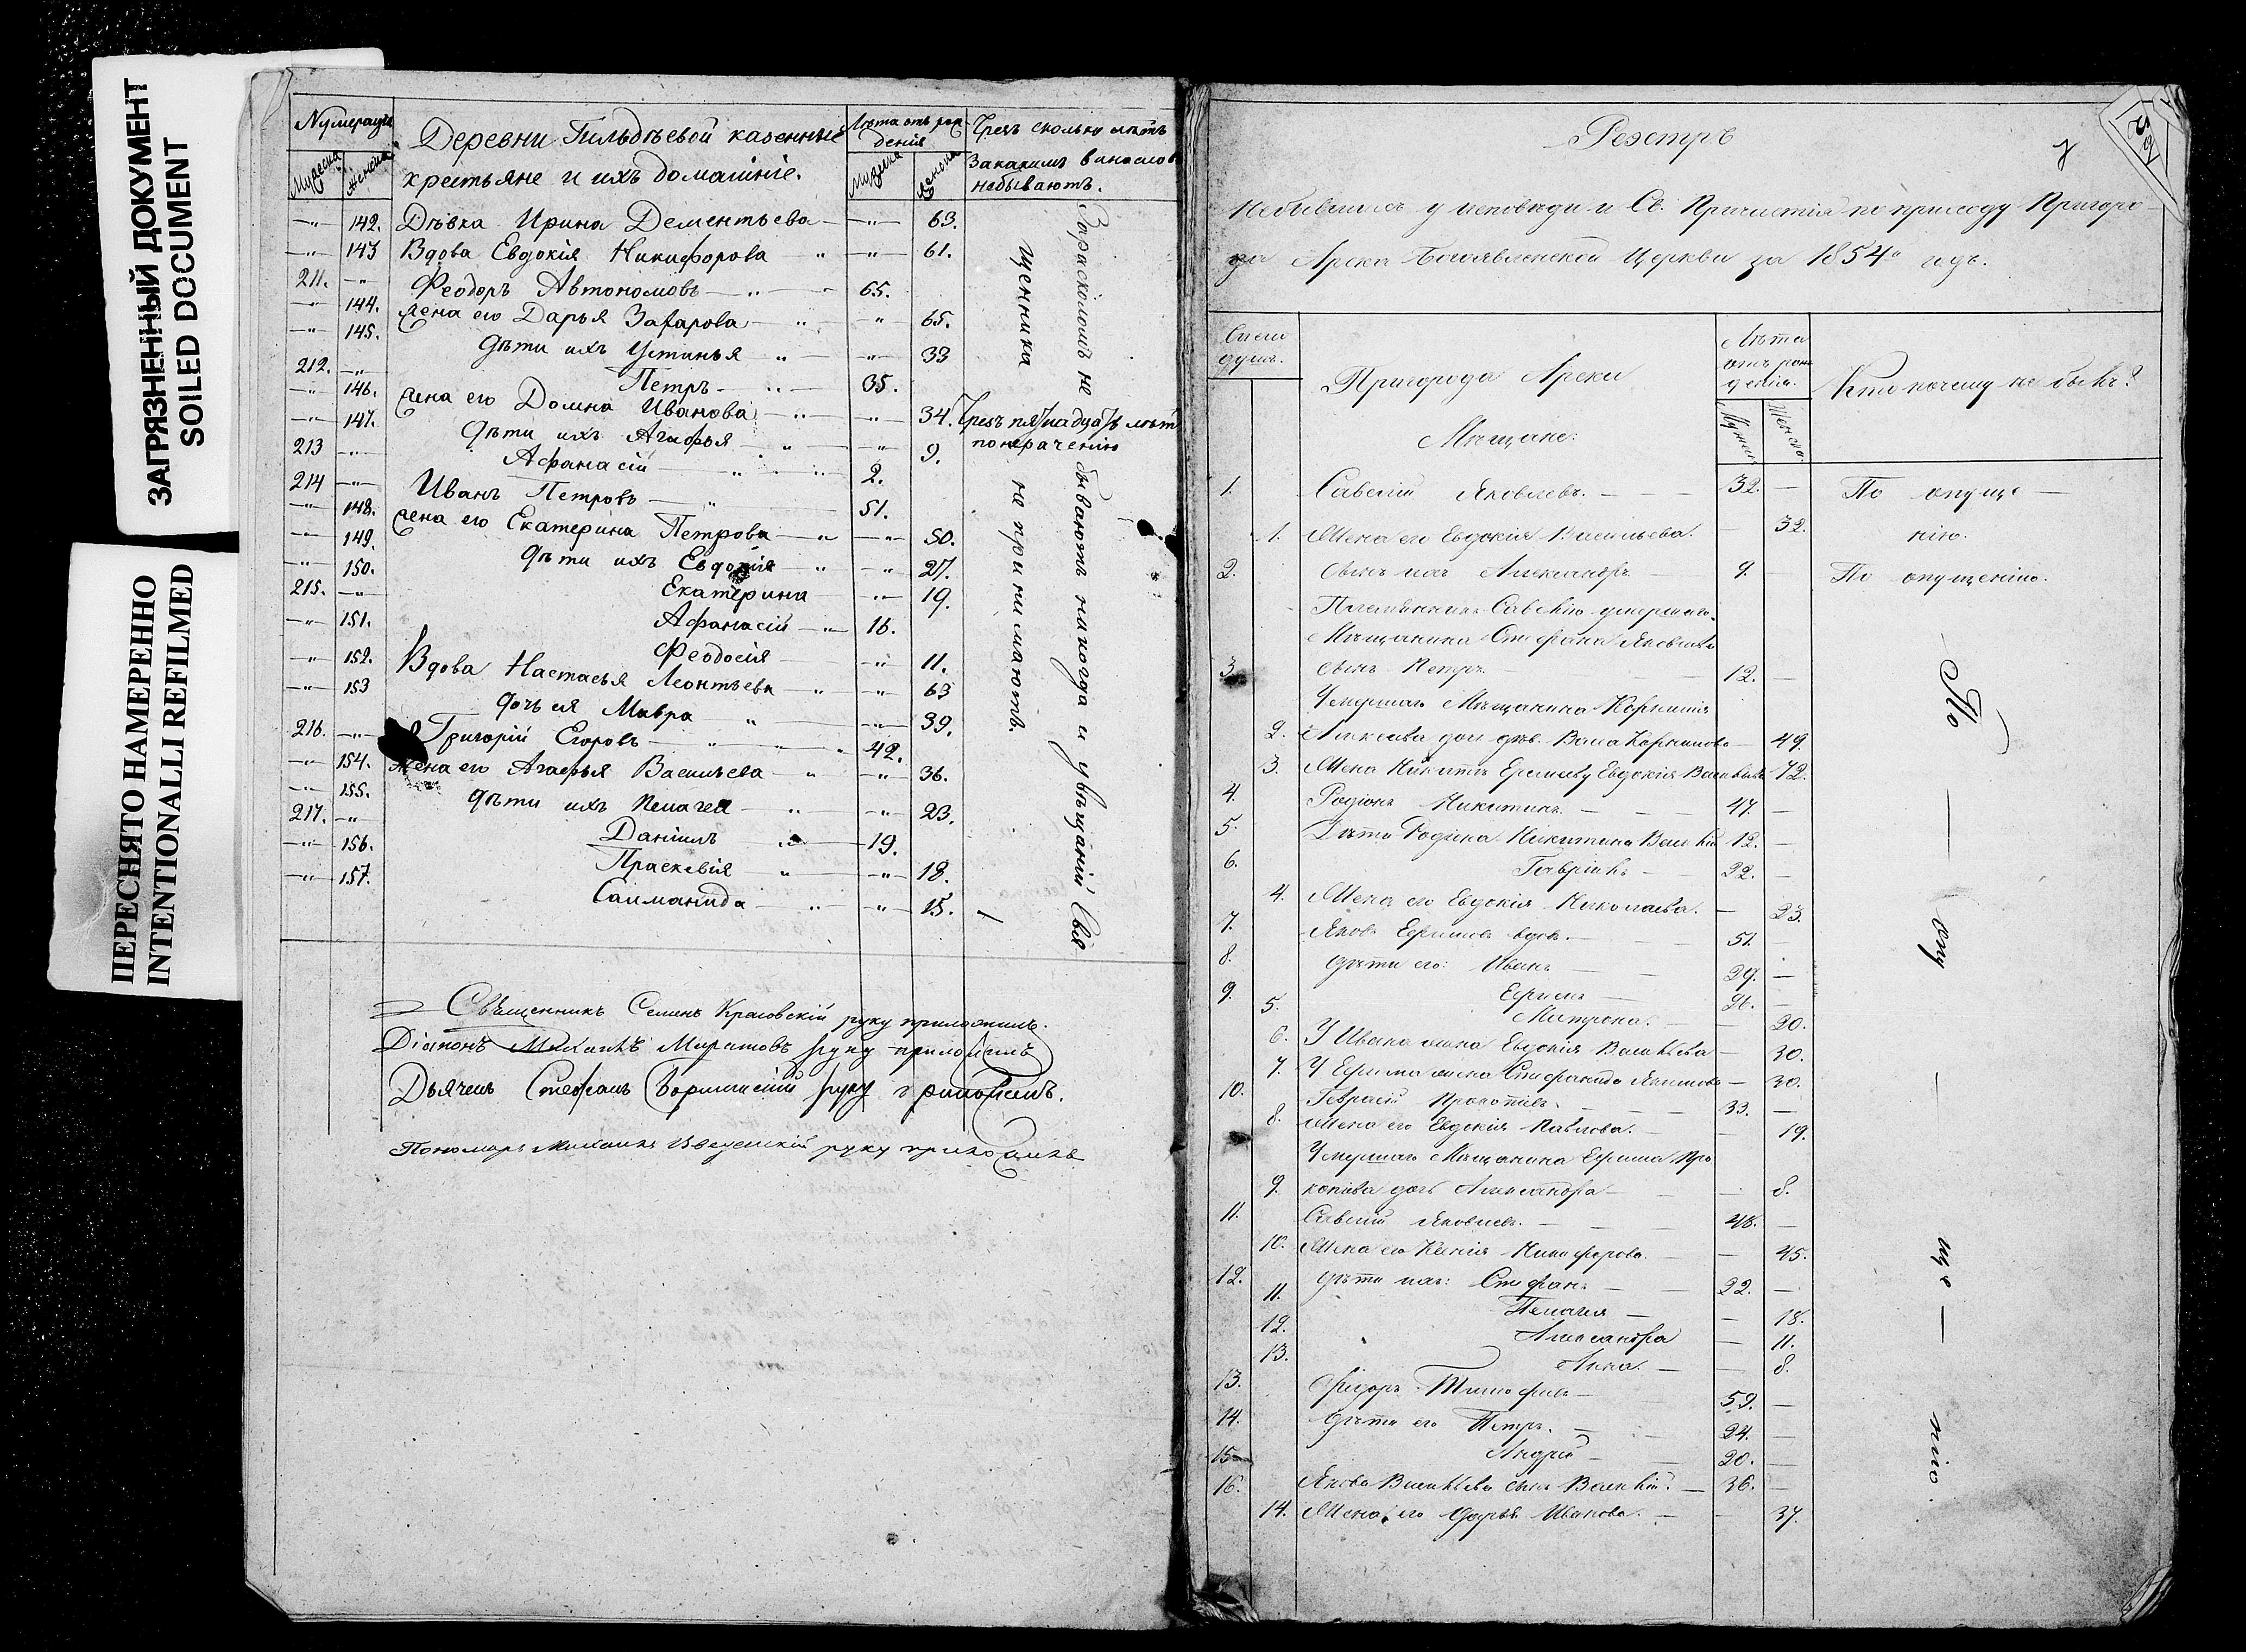 ЗАГРЯЗНЕННЫЙ ДОКУМЕНТ
SOILED DOCUMENT
ПЕРЕСНЯТО НАМЕРЕННО
INTENTIONALLI REFILMED
Нумерація
Мужеска Женска
Деревни Пильдѣевой казенные
крестьяне и ихъ домашніе.
Лѣта отъ рож
денія
Мужеска Женска
Чрезъ сколько лѣтъ
небываютъ.
—"— 142. Дѣвка Ирина Дементьева —"— 63.
—"— 143 Вдова Евдокія Никифорова —"— 61.
211. —"— Феодоръ Автономовъ —"— 65.
—"— 144. Жена его Дарья Захарова —"— 65.
—"— 145. Дѣти ихъ Устинья —"— 33
212. —"— Петръ —"— 35.
—"— 146. Жена его Домна Иванова —"— 34.
—"— 147. Дѣти ихъ Агафья —"— 9.
213 —"— Афанасій —"— 2.
214 —"— Иванъ Петровъ —"— 51.
—"— 148. Жена его Екатерина Петрова —"— 50.
—"— 149. Дѣти ихъ Евдокія —"— 27.
—"— 150. Екатерина —"— 19.
215. —"— Афанасій —"— 16.
—"— 151. Феодосія —"— 11.
—"— 152. Вдова Настасья Леонтьева —"— 63
—"— 153 дочь ея Мавра —"— 39.
216. —"— Григорій Егоровъ —"— 42.
—"— 154. Жена его Агафья Васильева —"— 36.
—"— 155. Дѣти ихъ Пелагея —"— 23.
217. —"— Даніилъ —"— 19.
—"— 156. Праскевія —"— 18.
—"— 157. Саломанида —"— 15.
Чрезъ пятнадцать лѣтъ
по нераченію
За расколомъ не бываютъ никогда и увѣщаній Свя
щенника не принимаютъ.
Священникъ Семенъ Красовскій руку приложилъ.
Діаконъ Михаилъ Муратовъ руку приложилъ
Дьячекъ Стефанъ руку приложилъ.
Пономарь Михаилъ Введенскій руку приложилъ
Реэстръ
7
Небывшимъ у исповѣди и Св. Причастія по приходу Пригоро-
да Арска Богоявленской Церкви за 1854й годъ.
Число
душъ.
Пригорода Арска
Мѣщане:
Лѣта
отъ рож
денія.
Мужск. Женска.
Кто почему не былъ?
1. Савелій Яковлевъ. — 32. — По опуще —
1. Жена его Евдокія Васильева. — 32. нію.
2. Сынъ ихъ Александръ 9. По опущенію.
Племянникъ Савелію умершаго
Мѣщанина Стефана Яковлева
3. сынъ Петръ. 12. —
Умершаго Мѣщанина Корнилія
2. Алексѣева дочь дѣв. Васса Корнилова — 49.
3. Жена Никиты Ефимову Евдокія Васильева 72.
4. Родіонъ Никитинъ. — 47. —
5. Дѣти Родіона Никитина Василій 12. —
6. Гавріилъ — 22. —
4. Жена его Евдокія Николаева. — 23.
7. Яковъ Ефимовъ вдовъ. — 51. —
8. дѣти его: Иванъ — 29. —
9. Ефимъ — 26. —
5. Матрона. — 20.
6. У Ивана жена Евдокія Васильева — 30.
7. У Ефима жена Стефанида Якимова — 30.
10. Герасій Прокопьевъ. — 33. —
8. Жена его Евдокія Павлова. — 19.
Умершаго Мѣщанина Ефима Про
9. копьева дочь Александра — 8.
11. Савелій Яковлевъ. — 48. —
10. Жена его Ксенія Никифорова. — 45.
12. дѣти ихъ: Стефанъ — 22. —
11. Пелагія — 18.
12. Александра — 11.
13. Анна. — 8.
13. Ѳедоръ Тимофѣевъ — 59. —
14. дѣти его Петръ. — 24. —
15. Андрей — 20. —
16. Якова Васильева сынъ Василій. — 36. —
14. Жена его Дарья Иванова. — 37.
— По — опу — ще — нію.